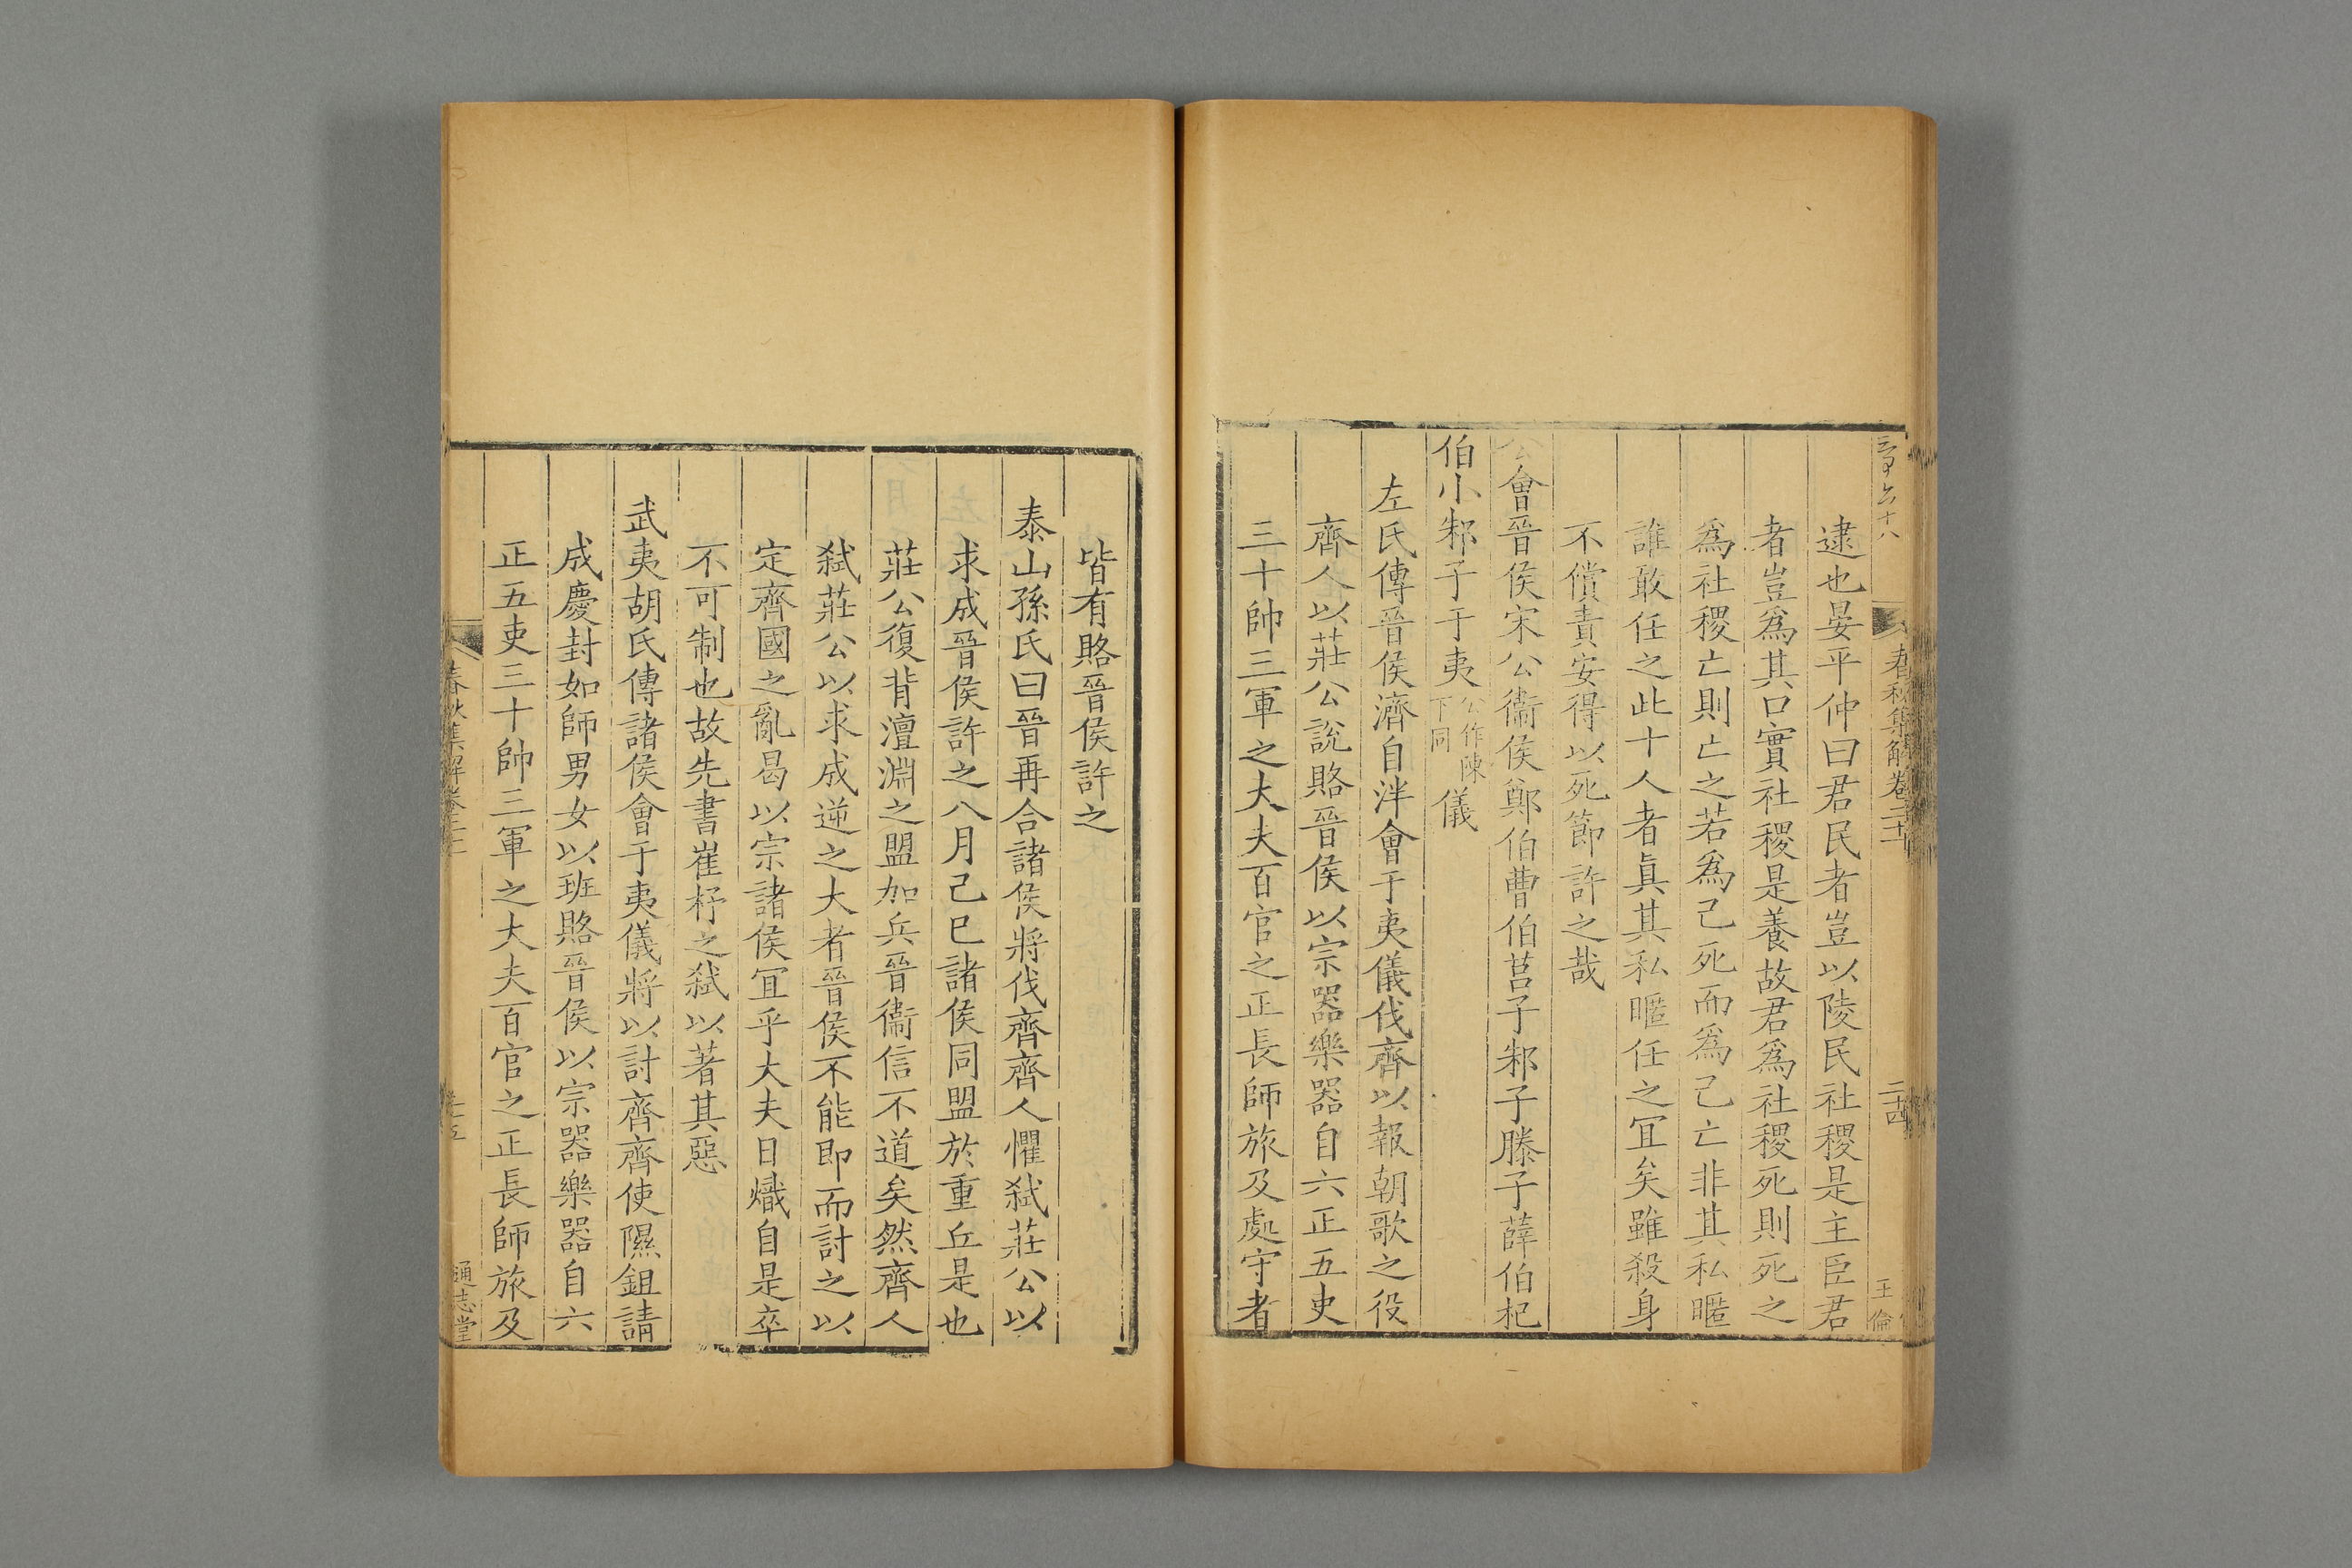 春秋集解卷二十
二十四
王倫
逮也晏平仲曰君民者豈以陵民社稷是主臣君
者豈爲其口實社稷是養故君爲社稷死則死之
爲社稷亡則亡之若爲己死而爲己亡非其私暱
誰敢任之此十人者真其私暱任之冝矣雖殺身
不償責安得以死節許之哉
公會晉侯宋公衞侯鄭伯曹伯莒子邾子滕子薛伯杞
伯小邾子于夷公作陳下同儀
左氏傳晉侯濟自泮會于夷儀伐齊以報朝歌之役
齊人以莊公說賂晉侯以宗器樂器自六正五吏
三十帥三軍之大夫百官之正長師旅及處守者
皆有賂晉侯許之
泰山孫氏曰晉再合諸侯將伐齊齊人懼弑莊公以
求成晉侯許之八月己巳諸侯同盟於重丘是也
莊公復背澶淵之盟加兵晉衞信不道矣然齊人
弑莊公以求成逆之大者晉侯不能即而討之以
定齊國之亂曷以宗諸侯冝乎大夫日熾自是卒
不可制也故先書崔杼之弑以著其惡
武夷胡氏傳諸侯會于夷儀將以討齊齊使隰鉏請
成慶封如師男女以班賂晉侯以宗器樂器自六
正五吏三十帥三軍之大夫百官之正長師旅及
春秋集解卷二十
通志堂